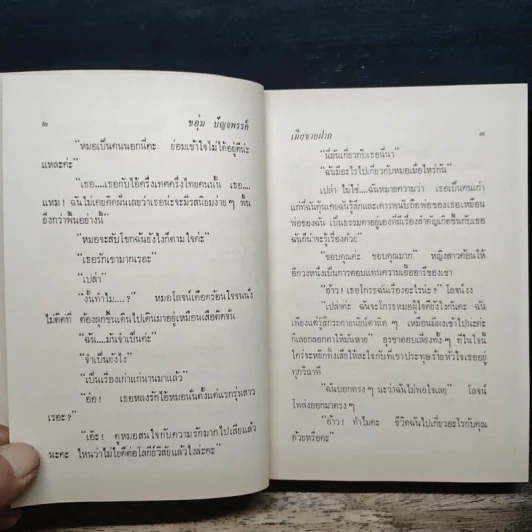 ๒
ขอุ้ม ปัญจพรรค์
"หมอเป็นคนนอกนี่คะ ย่อมเข้าใจไม่ได้อยู่ดีน่ะ
แหละค่ะ"
"เธอ....เธอกับไอ้ครึ่งเทศครึ่งไทยคนนั้น เธอ....
แหม! ฉันไม่เคยคิดฝันเลยว่าเธอน่ะจะมีรสนิยมง่ายๆ พื้นๆ
ยิ่งกว่าพื้นอย่างนี้"
"หมอจะสับโขกฉันยังไงก็ตามใจค่ะ"
"เธอรักเขามากเรอะ"
"เปล่า"
"งั้นทำไม....?" หมอโลจน์เดือดร้อนใจจนนั่ง
ไม่ติดที่ ต้องลุกขึ้นเดินไปเดินมาอยู่เหมือนเสือติดจั่น
"ฉัน....มันจำเป็นค่ะ"
"จำเป็นยังไง"
"เป็นเรื่องเก่าแก่นานมาแล้ว"
"อ้อ! เธอหลงรักไอ้หมอนั่นตั้งแต่แรกรุ่นสาว
เรอะ?"
"เอ๊ะ! ดูหมอสนใจกับความรักมากไปเสียแล้ว
นะคะ ไหนว่าไม่ไยดีต่อโลกีย์วิสัยแล้วไงล่ะคะ"
เมียขายฝาก
๓
"นี่มันเกี่ยวกับเธอนี่นา"
"ฉันมีอะไรไปเกี่ยวกับหมอเมื่อไหร่กัน"
เปล่า ไม่ใช่....ฉันหมายความว่า เธอเป็นคนเก่า
แก่ที่ฉันคุ้นเคยฉันรู้สึกและเคารพนับถือพ่อของเธอเหมือน
พ่อของฉัน เป็นธรรมดาอยู่เองที่มีเรื่องสำคัญเกิดขึ้นกับเธอ
ฉันก็น่าจะรู้เรื่องด้วย"
"ขอบคุณค่ะ ขอบคุณมาก" หญิงสาวค้อนให้
อีกวงหนึ่งเป็นการตอบแทนความเอื้ออารีของเขา
"อ้าว! เธอโกรธฉันเรื่องอะไรน่ะ?" โลจน์งง
"เปล่าค่ะ ฉันจะโกรธหมอผู้ใจดียังไงกันคะ ฉัน
เพียงแต่รู้สึกระคายนัยน์ตานิด ๆ เหมือนมีผงเข้าไปน่ะค่ะ
ก็เลยกลอกตาให้มันหาย" อุรชาตอบเลี่ยงทั้ง ๆ ที่ในใจนั้น
ใคร่จะหยิกทึ้งเสียให้สะใจกับที่เขาประทุษร้ายหัวใจเธออยู่
ทุกวินาที
"ฉันบอกตรง ๆ นะว่าฉันไม่พอใจเลย" โลจน์
โพล่งออกมาตรง ๆ
"อ้าว! ทำไมคะ ชีวิตฉันไปเกี่ยวอะไรกับคุณ
ด้วยหรือคะ"